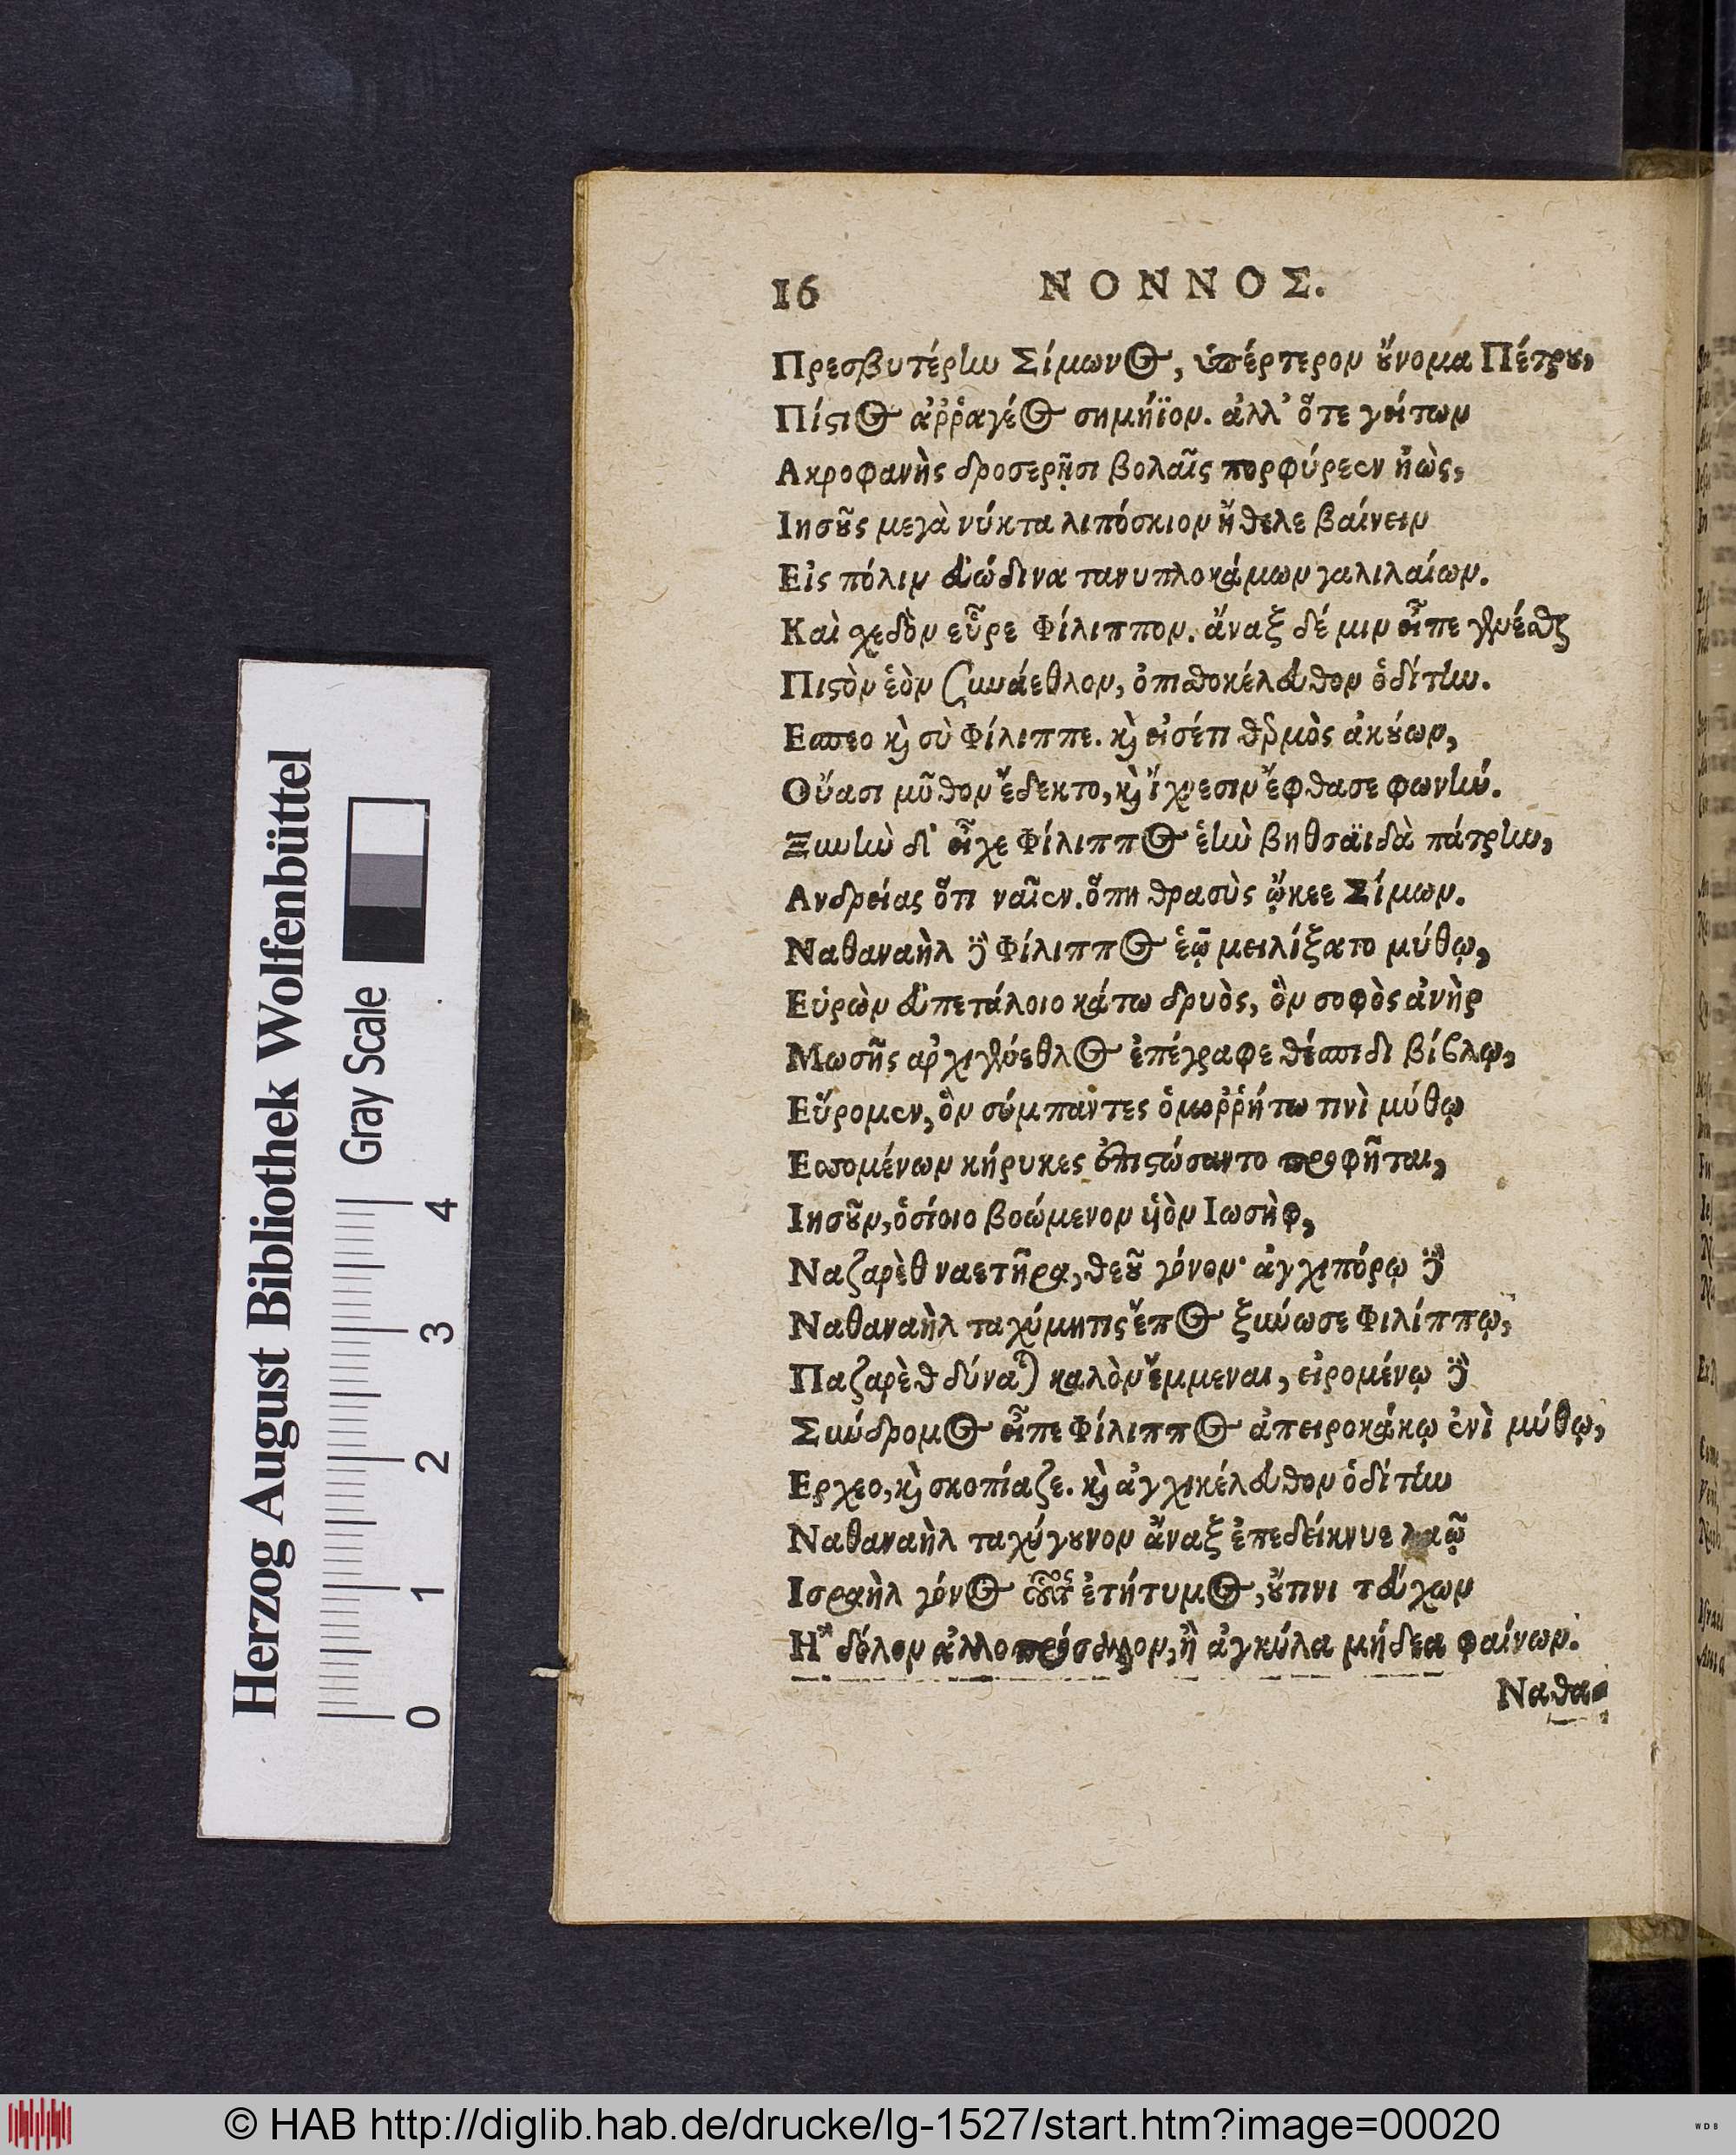 16 ΝΟΝΝΟΣ.
Πρεσβυτέρην Σίμωνος, ὑπέρτερον οὔνομα Πέτρου,
Πίστιος ἀῤῥαγέος σημήϊον. ἀλλ' ὅτε γείτων
Ακροφανὴς δροσερῇσι βολαῖς πορφύρεεν ἠὼς,
Ιησοῦς μετὰ νύκτα λιπόσκιον ἤθελε βαίνειν
Εἰς πόλιν εὐώδινα τανυπλοκάμων γαλιλαίων.
Καὶ σχεδὸν εὗρε Φίλιππον. ἄναξ δέ μιν εἶπε γενέσθαι
Πιστὸν ἑὸν συνάεθλον, ὀπισθοκέλευθον ὁδίτην.
Εσπεο καὶ σὺ Φίλιππε. καὶ εἰσέτι θερμὸς ἀκούων,
Οὔασι μῦθον ἔδεκτο, καὶ ἴχνεσιν ἔφθασε φωνήν.
Ξυνὴν δ' εἶχε Φίλιππος ἑὴν βηθσαϊδὰ πάτρην,
Ανδρείας ὅτι ναῖεν. ὅπη θρασὺς ᾤκεε Σίμων.
Ναθαναὴλ δὲ Φίλιππος ἑῷ μειλίξατο μύθῳ,
Εὑρὼν εὐπετάλοιο κάτω δρυὸς, ὃν σοφὸς ἀνὴρ
Μωσῆς ἀρχιγένεθλος ἐπέγραφε θέσπιδι βίβλῳ,
Εὕρομεν, ὃν σύμπαντες ὁμοῤῥήτω τινὶ μύθῳ
Εσσομένων κήρυκες ἐπιστώσαντο προφῆται,
Ιησοῦν, ὁσίοιο βοώμενον υἱὸν Ιωσὴφ,
Ναζαρὲθ ναετῆρα, θεοῦ γόνον· ἀγχιπόρῳ δὲ
Ναθαναὴλ ταχύμητις ἔπος ξυνωσε Φιλίππῳ,
Παζαρὲθ δύναται καλὸν ἔμμεναι, εἰρομένῳ δὲ
Σύνδρομος εἶπε Φίλιππος ἀπειροκάκῳ ἐνὶ μύθῳ,
Ερχεο, καὶ σκοπίαζε. καὶ ἀγχικέλευθον ὁδίτην
Ναθαναὴλ ταχύγουνον ἄναξ ἐπεδείκνυε λαῷ
Ισραὴλ γόνος οὗτος ἐτήτυμος, οὔτινι τεύχων
Ἢ δόλον ἀλλοπρόσαλλον, ἢ ἀγκύλα μήδεα φαίνων.
Ναθα-
Herzog August Bibliothek Wolfenbüttel
Gray Scale
0 1 2 3 4
© HAB http://diglib.hab.de/drucke/lg-1527/start.htm?image=00020
WDB